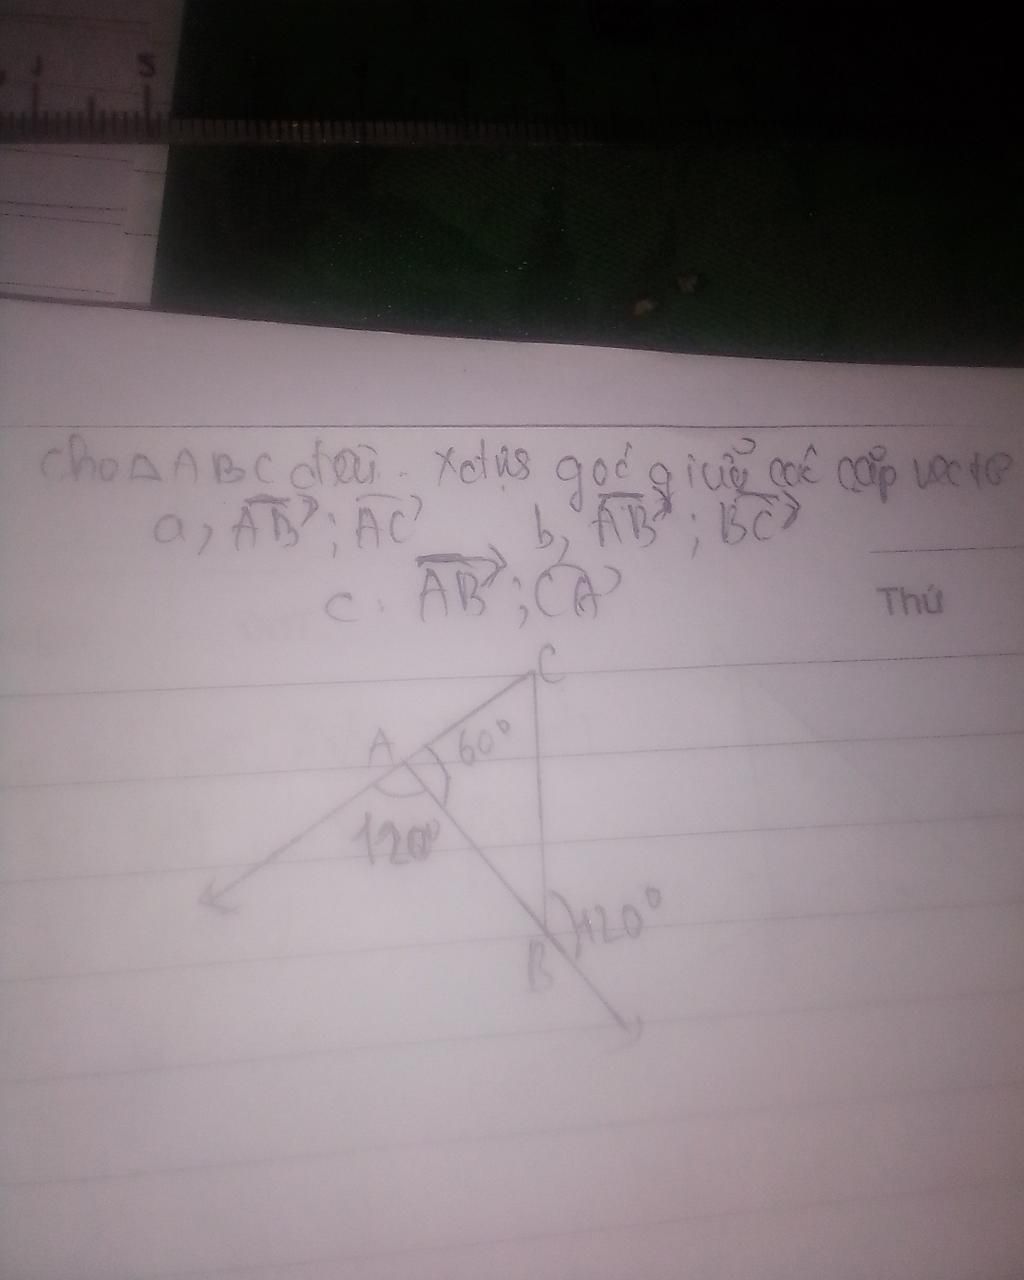 5
Cho △ABC đều. Xđịs góc giữa các cặp vectơ
a, AB; AC b, AB; BC
c. AB; CA
Thứ
C
A 60°
120°
120°
B